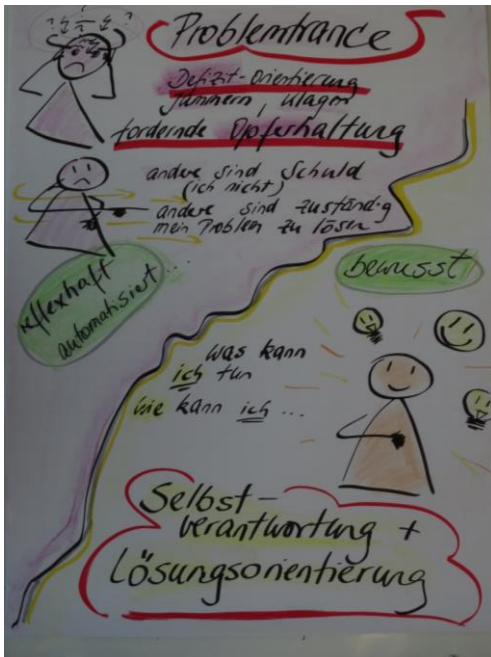 Problemtrance
Defizit-Orientierung
Jammern, klagen
fordernde Opferhaltung
andere sind Schuld
(ich nicht)
andere sind zuständig
mein Problem zu lösen
reflexhaft
automatisiert...
bewusst
was kann
ich tun
wie kann ich ...
Selbst-
verantwortung +
Lösungsorientierung